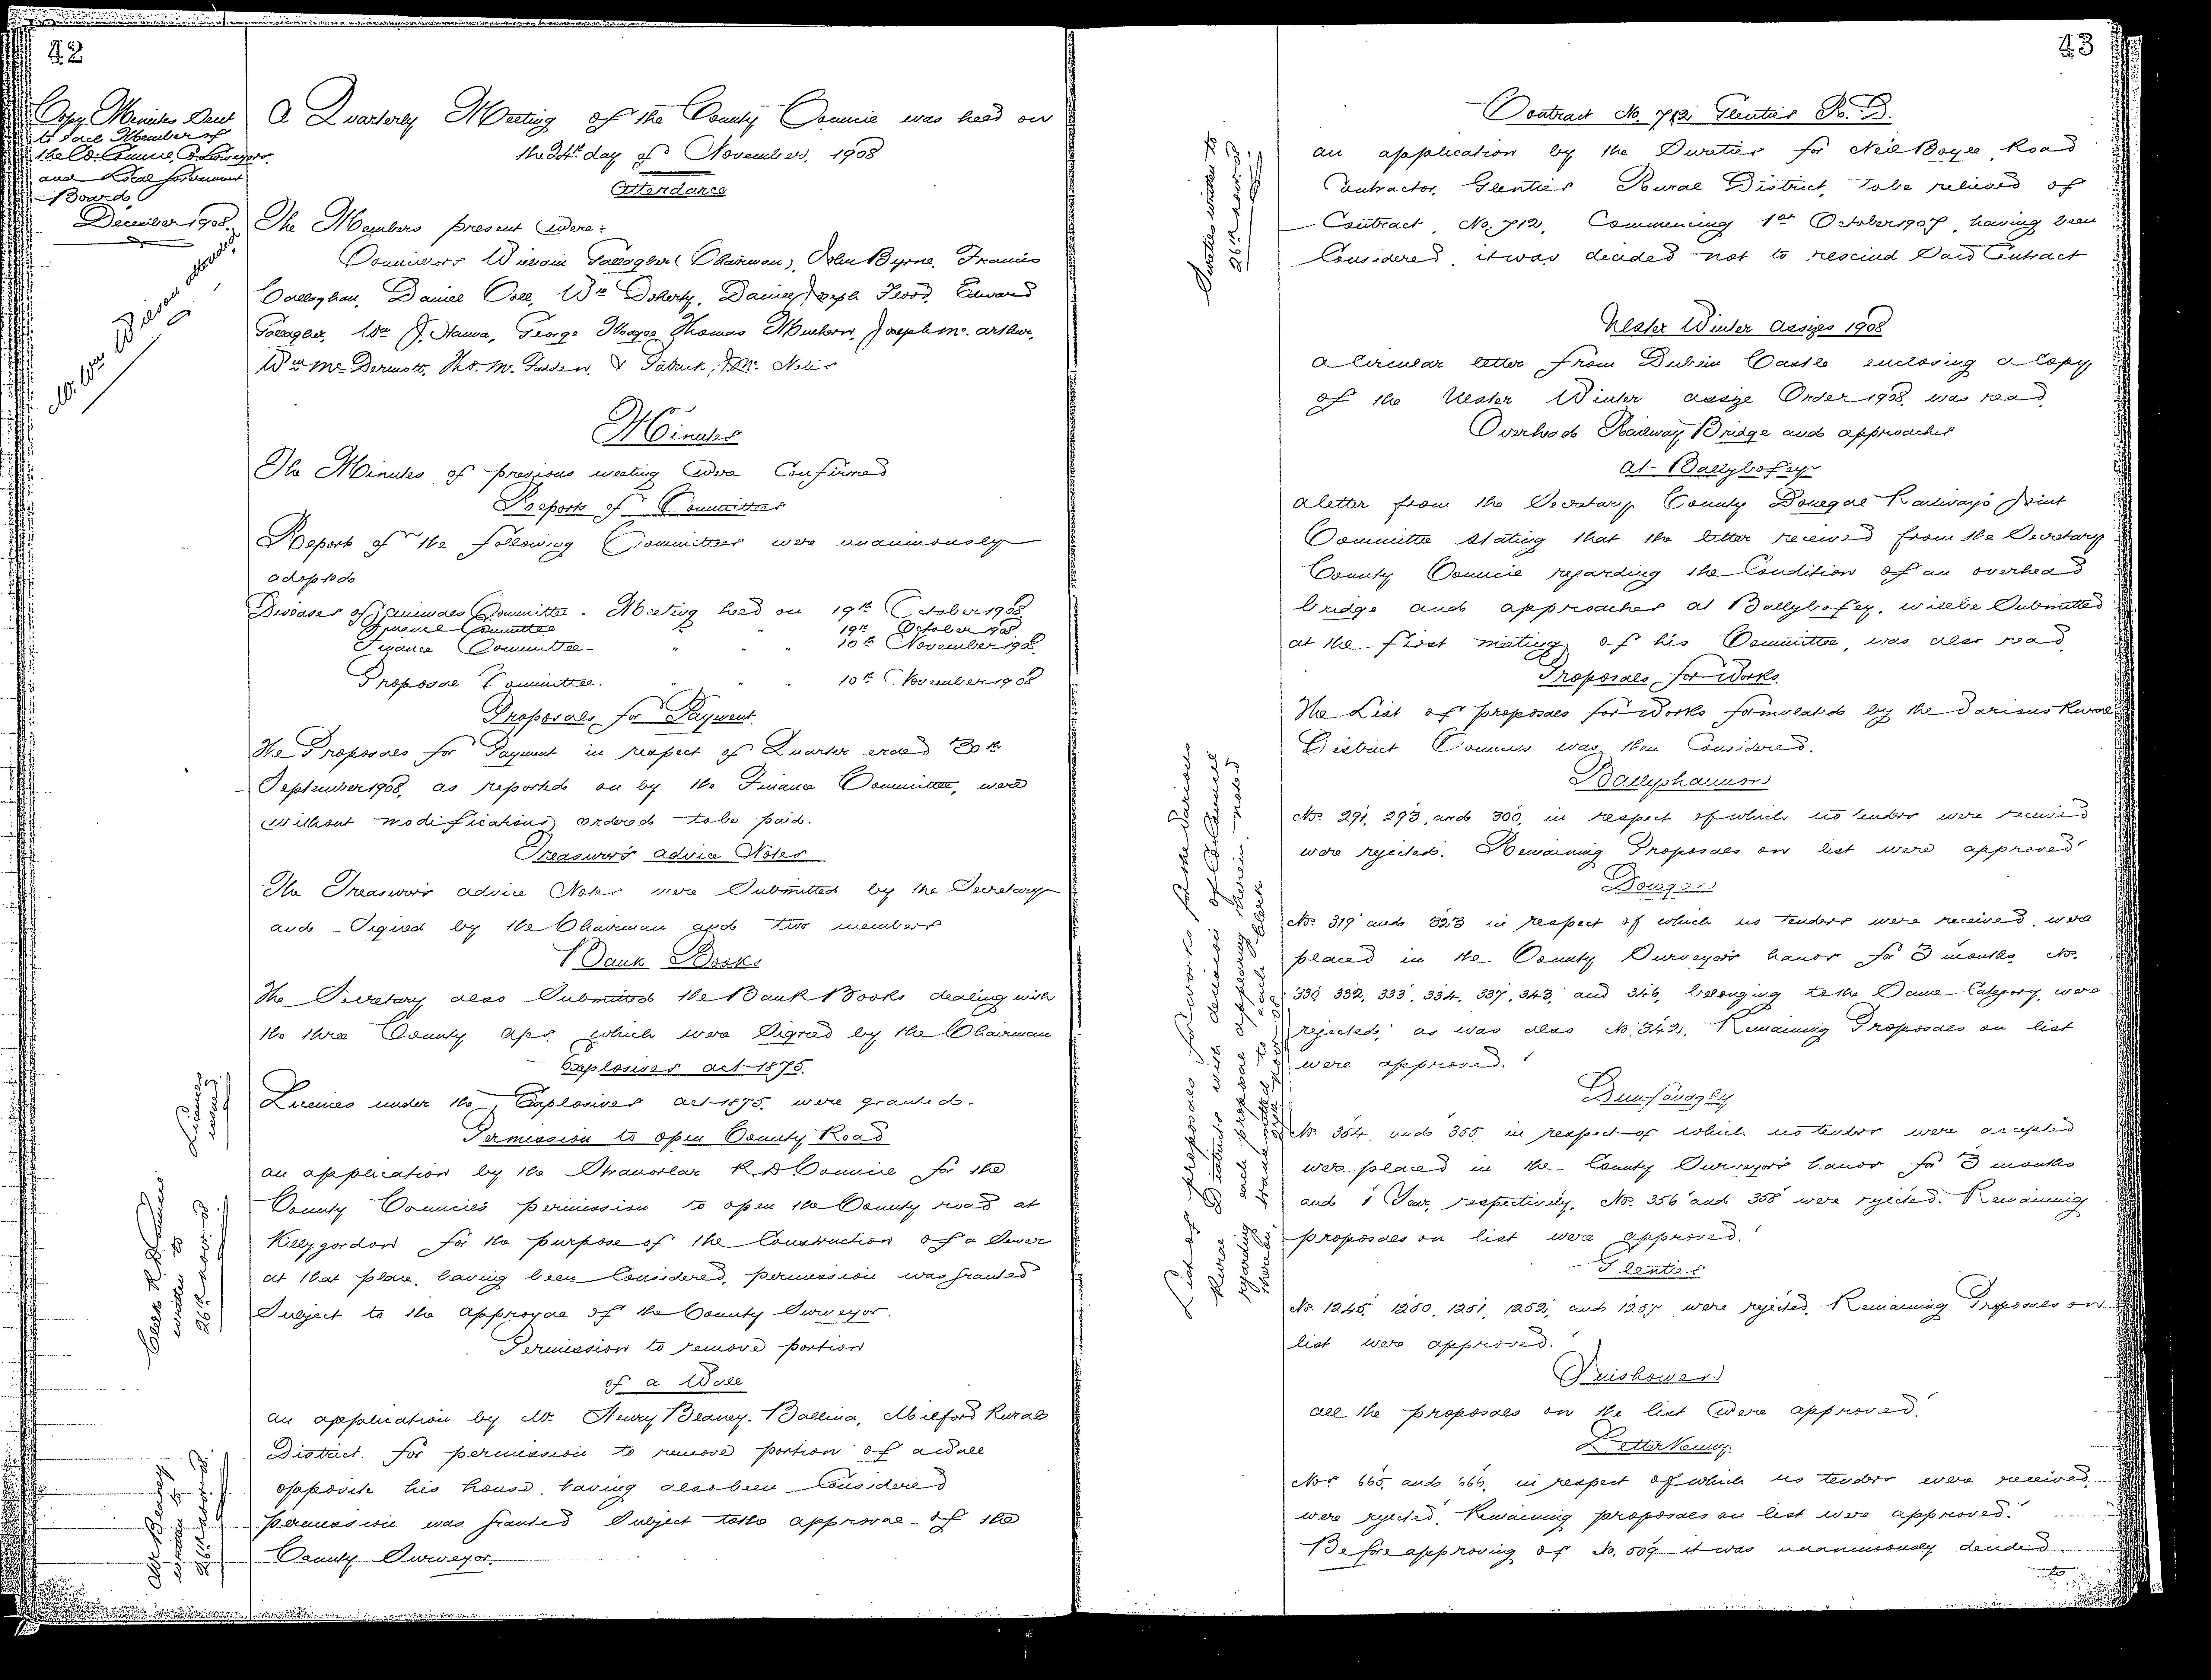 42
Copy Minutes Sent
to each Member of
the Co. Council, Co. Surveyor
and Local Government
Board
December 1908.
A Quarterly Meeting of the County Council was held on
the 24th day of November, 1908
Attendance
The Members present were:
Councillors William Gallagher (Chairman), John Byrne, Francis
Callaghan, Daniel Coll, Wm Doherty, Daniel Joseph Flood, Edward
Gallagher, Wm J. Hanna, George Magee, Thomas Meehan, Joseph Mc. Arthur,
Wm Mc Dermott, Tho. Mc. Fadden, & Patrick Mc. Nelis
Mr. Wm Wilson attended
Minutes
The Minutes of previous meeting were Confirmed
Reports of Committees
Report of the following Committees were unanimously
adopted
Diseases of Animals Committee - Meeting held on 19th October 1908
Proposal Committee " " 19th October 1908
Finance Committee - " " " 10th November 1908.
Proposal Committee. " " " 10th November 1908
Proposals for Payment.
The Proposals for Payment in respect of Quarter ended 30th
September 1908, as reported on by the Finance Committee, were
without modifications ordered to be paid.
Treasurer's Advice Notes
The Treasurer's Advice Notes were Submitted by the Secretary
and Signed by the Chairman and two members
Bank Books
The Secretary also Submitted the Bank Books dealing with
the three County a/cs. which were Signed by the Chairman
Explosives Act 1875.
Licences
issued
Licences under the Explosives Act 1875, were granted.
Permission to open County Road
Clerk R.D. Council
written to
26th Nov. 08
an application by the Stranorlar R D Council for the
County Council's permission to open the County road at
Killygordon for the purpose of the Construction of a Sewer
at that place, having been Considered, permission was granted
Subject to the approval of the County Surveyor.
Permission to remove portion
of a Wall
Mr Blaney
written to
26th Nov. 08
an application by Mr Henry Blaney, Ballina, Milford Rural
District for permission to remove portion of a wall
opposite his house, having also been Considered
permission was granted Subject to the approval of the
County Surveyor.
43
Contract No. 712 Glenties R. D.
Sureties written to
26th Nov. 08
an application by the Sureties for Neil Boyle Road
Contractor, Glenties Rural District, to be relieved of
Contract No. 712, Commencing 1st October 1907, having been
Considered, it was decided not to rescind Said Contract
Ulster Winter Assizes 1908
a Circular letter from Dublin Castle enclosing a Copy
of the Ulster Winter Assize Order 1908 was read
Overhead Railway Bridge and approaches
at Ballybofey
a letter from the Secretary County Donegal Railways Joint
Committee Stating that the letter received from the Secretary
County Council regarding the Condition of an overhead
bridge and approaches at Ballybofey, will be Submitted
at the first meeting of his Committee, was also read
Proposals for Works
List of proposals for works for the various
Rural Districts with decision of Co. Council
regarding each proposal appearing therein noted
The List of proposals for works formulated by the various Rural
District Councils was then Considered.
Ballyshannon
No. 291, 293, and 300, in respect of which no tenders were received
were rejected. Remaining Proposals on list were approved
Donegal
No. 319 and 323 in respect of which no tenders were received, were
placed in the County Surveyor's hands for 3 months. No.
330, 332, 333, 334, 337, 343, and 346, belonging to the Same Category, were
rejected, as was also No. 342. Remaining Proposals on list
were approved.
Dunfanaghy
No. 354, and 355, in respect of which no tenders were accepted
were placed in the County Surveyor's hands for 3 months
and 1 Year, respectively, No. 356 and 358 were rejected. Remaining
proposals on list were approved.
Glenties
No. 1245, 1250, 1251, 1252, and 1257 were rejected, Remaining Proposals on
list were approved.
Inishowen
all the proposals on the list were approved.
Letterkenny.
Nos 665, and 666, in respect of which no tenders were received,
were rejected. Remaining proposals on list were approved.
Before approving of No. 509 it was unanimously decided
to